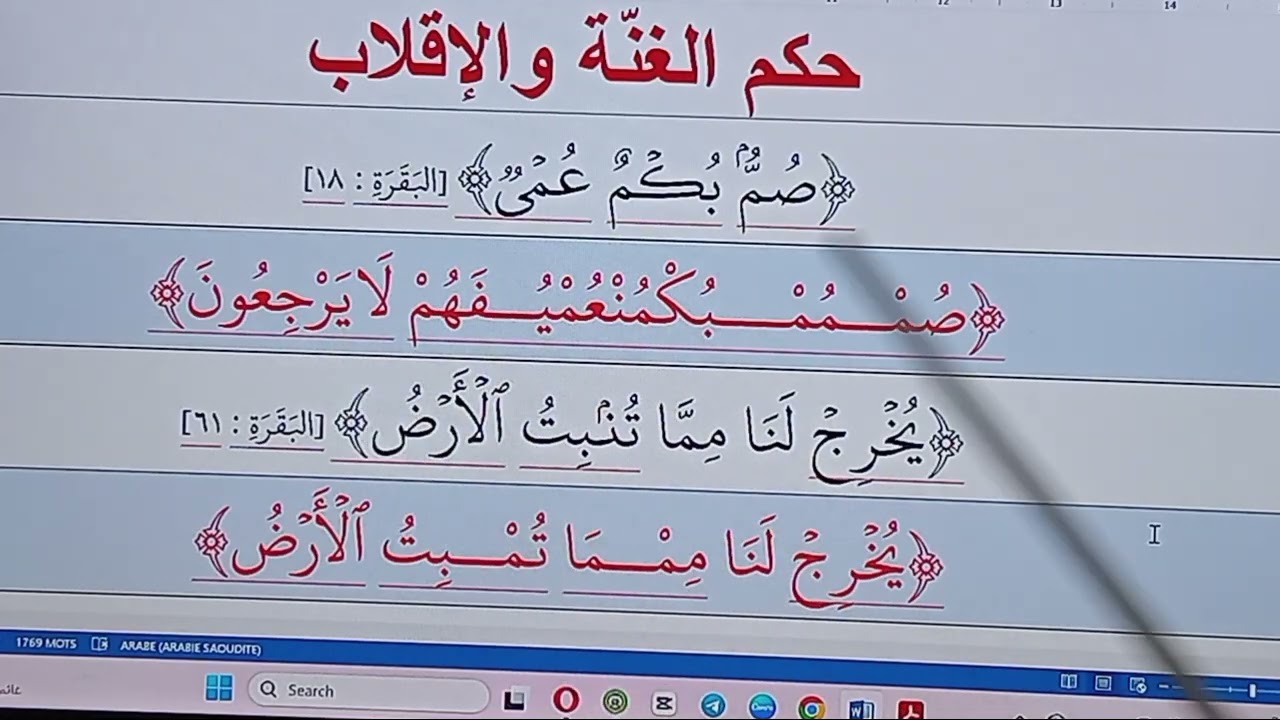 12 13 14
حكم الغنّة والإقلاب
﴿صُمُّۢ بُكۡمٌ عُمۡيٞ﴾ [البَقَرَةِ : ١٨]
﴿صُمْـمُمْـبُكْمُنْعُمْيُـفَهُمْ لَا يَرْجِعُونَ﴾
﴿يُخۡرِجۡ لَنَا مِمَّا تُنۢبِتُ ٱلۡأَرۡضُ﴾ [البَقَرَةِ : ٦١]
﴿يُخۡرِجۡ لَنَا مِمْـمَا تُمْـبِتُ ٱلۡأَرۡضُ﴾
1769 MOTS ARABE (ARABIE SAOUDITE)
Search